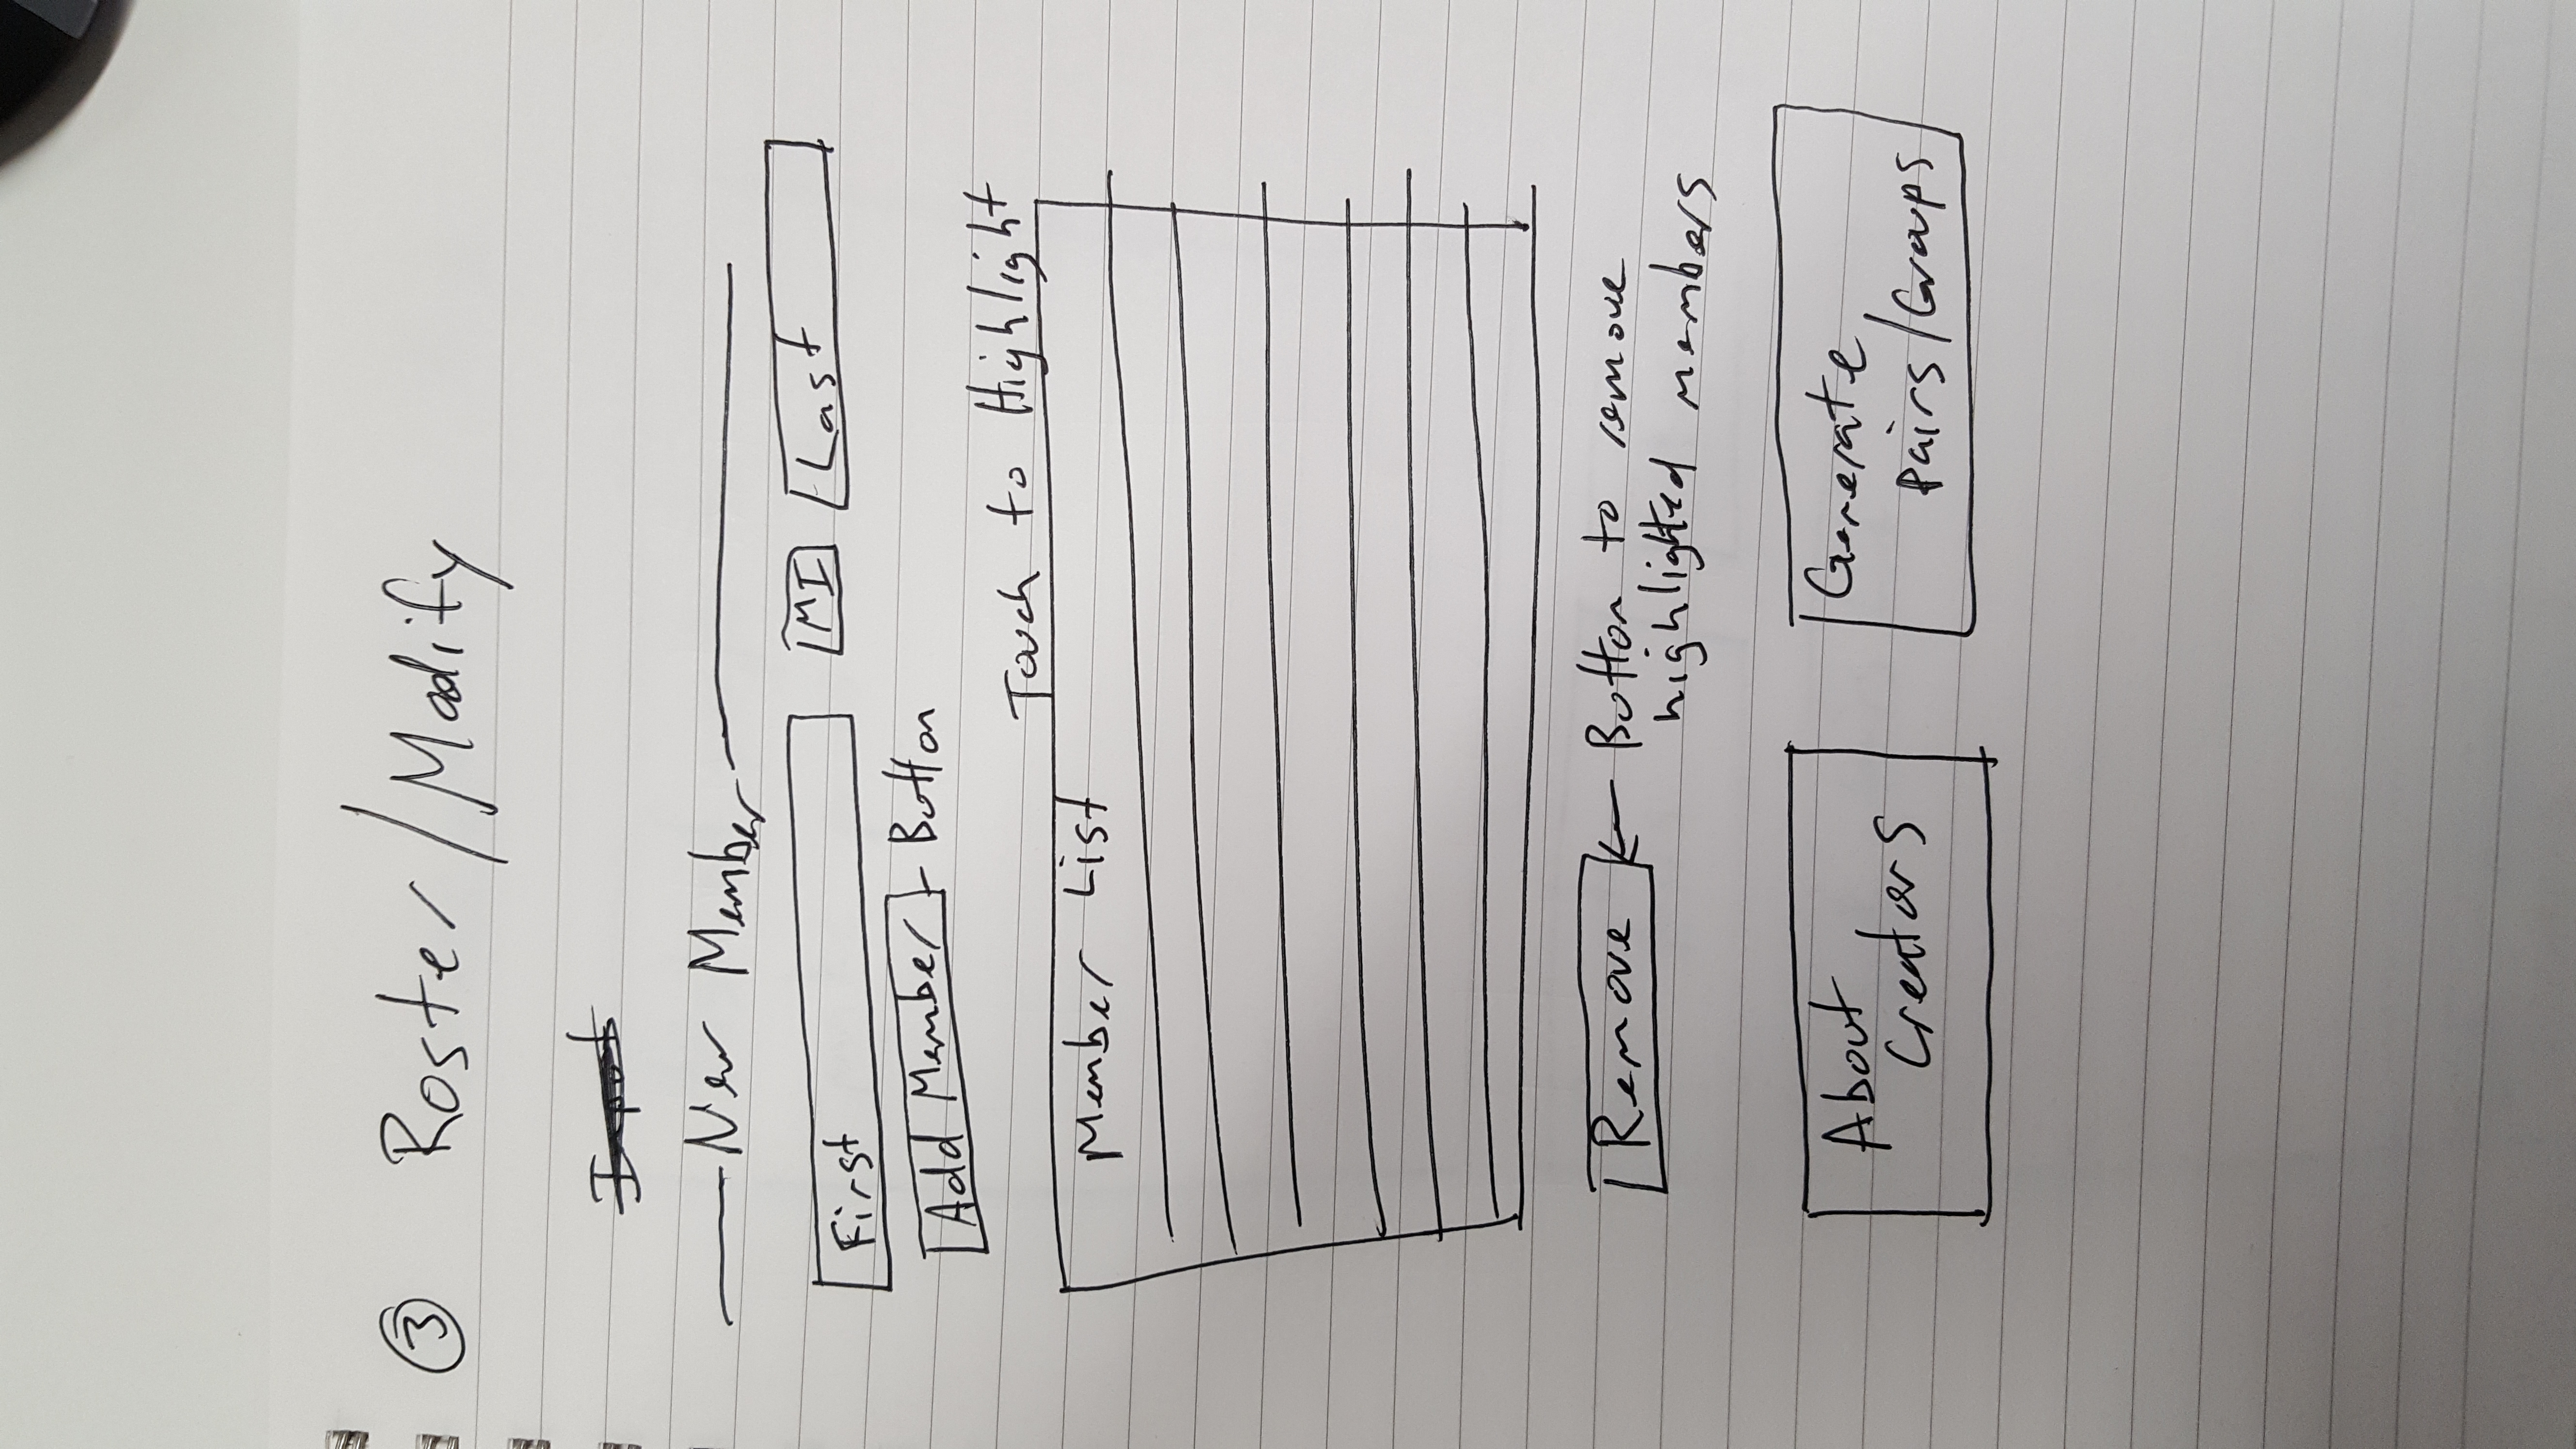 3 Roster/Modify
Input
New Member
First MI Last
Add Member - Button
Touch to Highlight
Member List
Remove ← Button to remove
highlighted members
About
Creators
Generate
Pairs/Groups